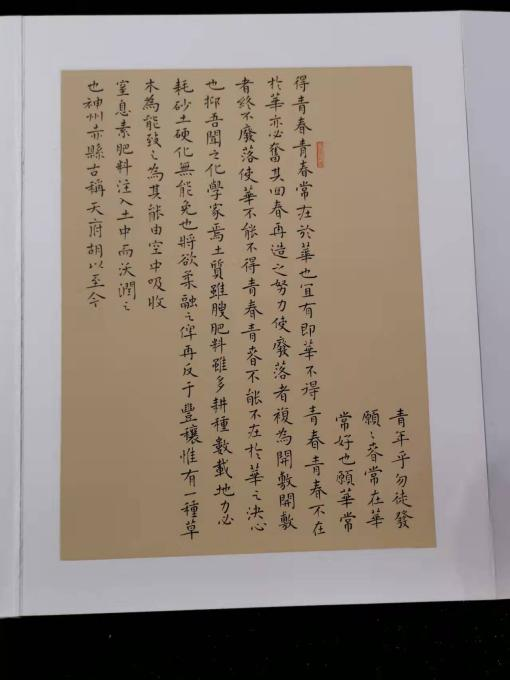 青年乎勿徒發
願〻春常在華
常好也願華常
得青春青春常在於華也宜有即華不得青春青春不在
於華亦必奮其回春再造之努力使廢落者複為開敷開敷
者終不廢落使華不能不得青春青春不能不在於華之決心
也抑吾聞之化學家焉土質雖腴肥料雖多耕種數載地力必
耗砂土硬化無能免也將欲柔融之俾再反于豐穰惟有一種草
木為能致之為其能由空中吸收
窒息素肥料注入土中而沃潤之
也神州赤縣古稱天府胡以至今